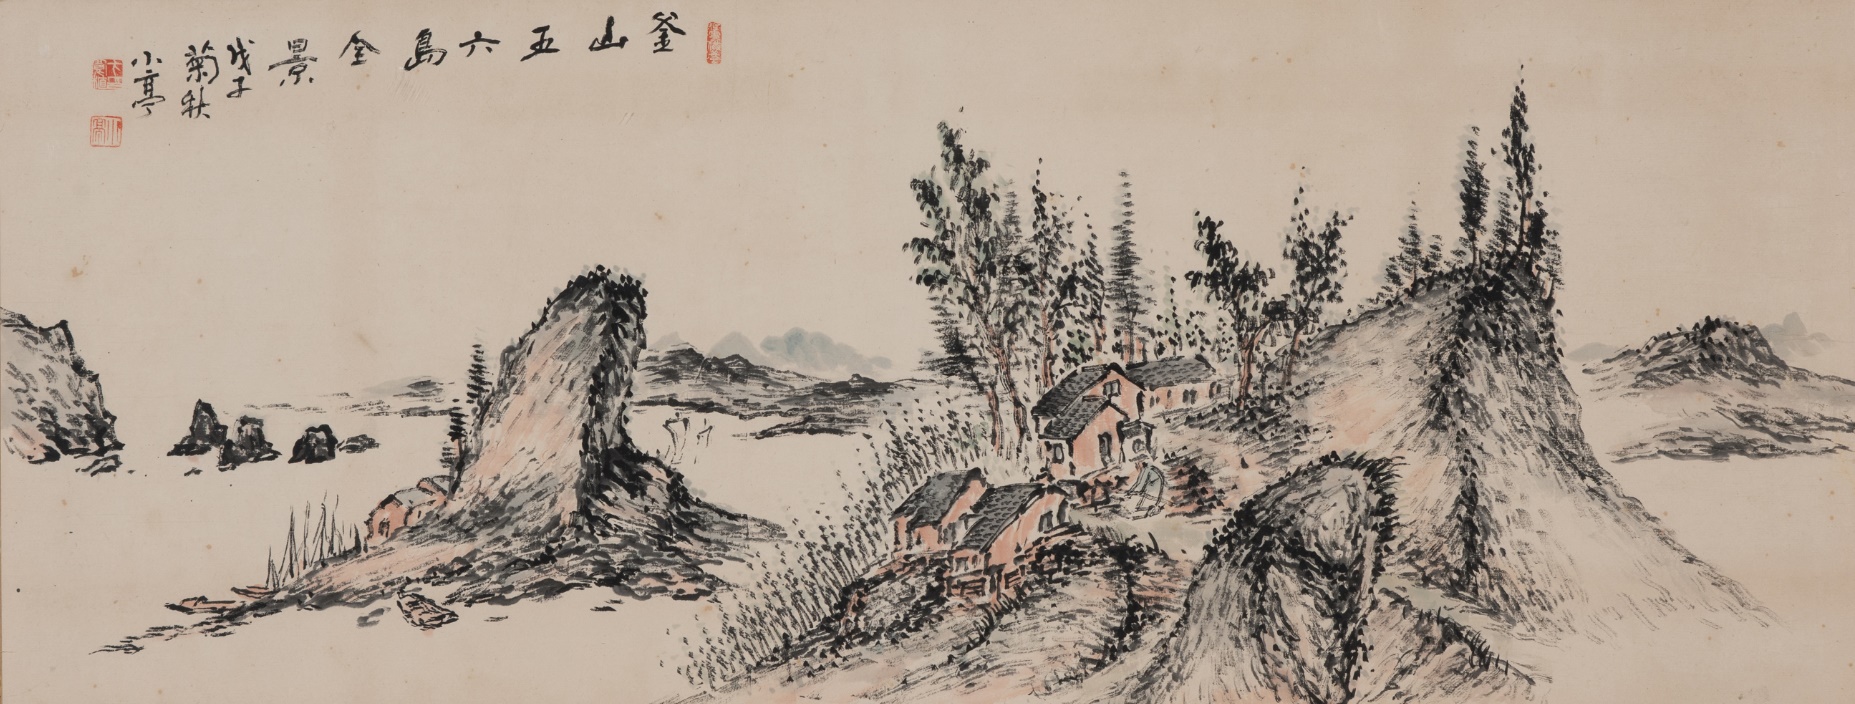 釜山五六島全景
戊子
菊秋
小亭